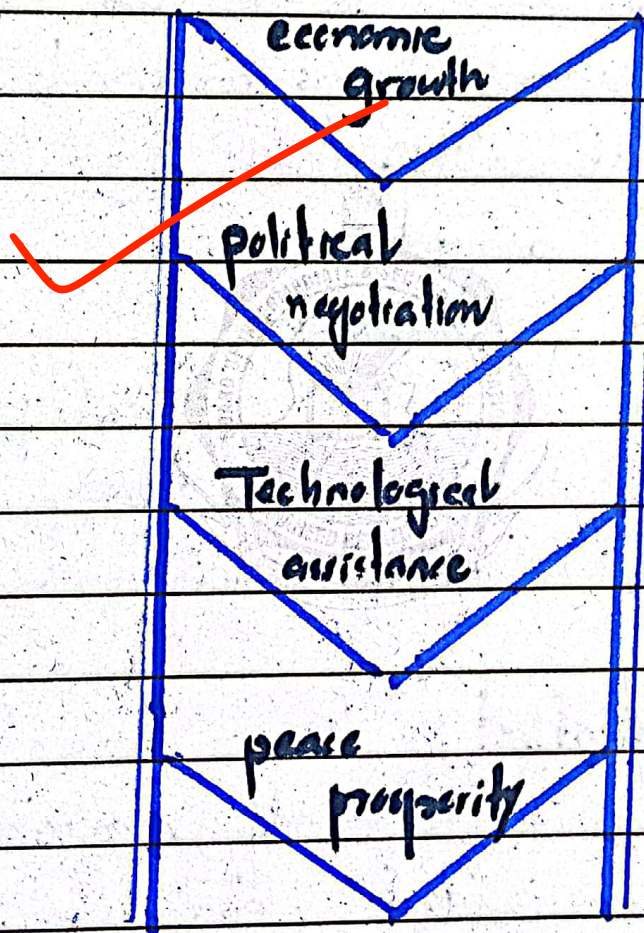 economic
growth
political
negotiation
Technological
assistance
peace
prosperity